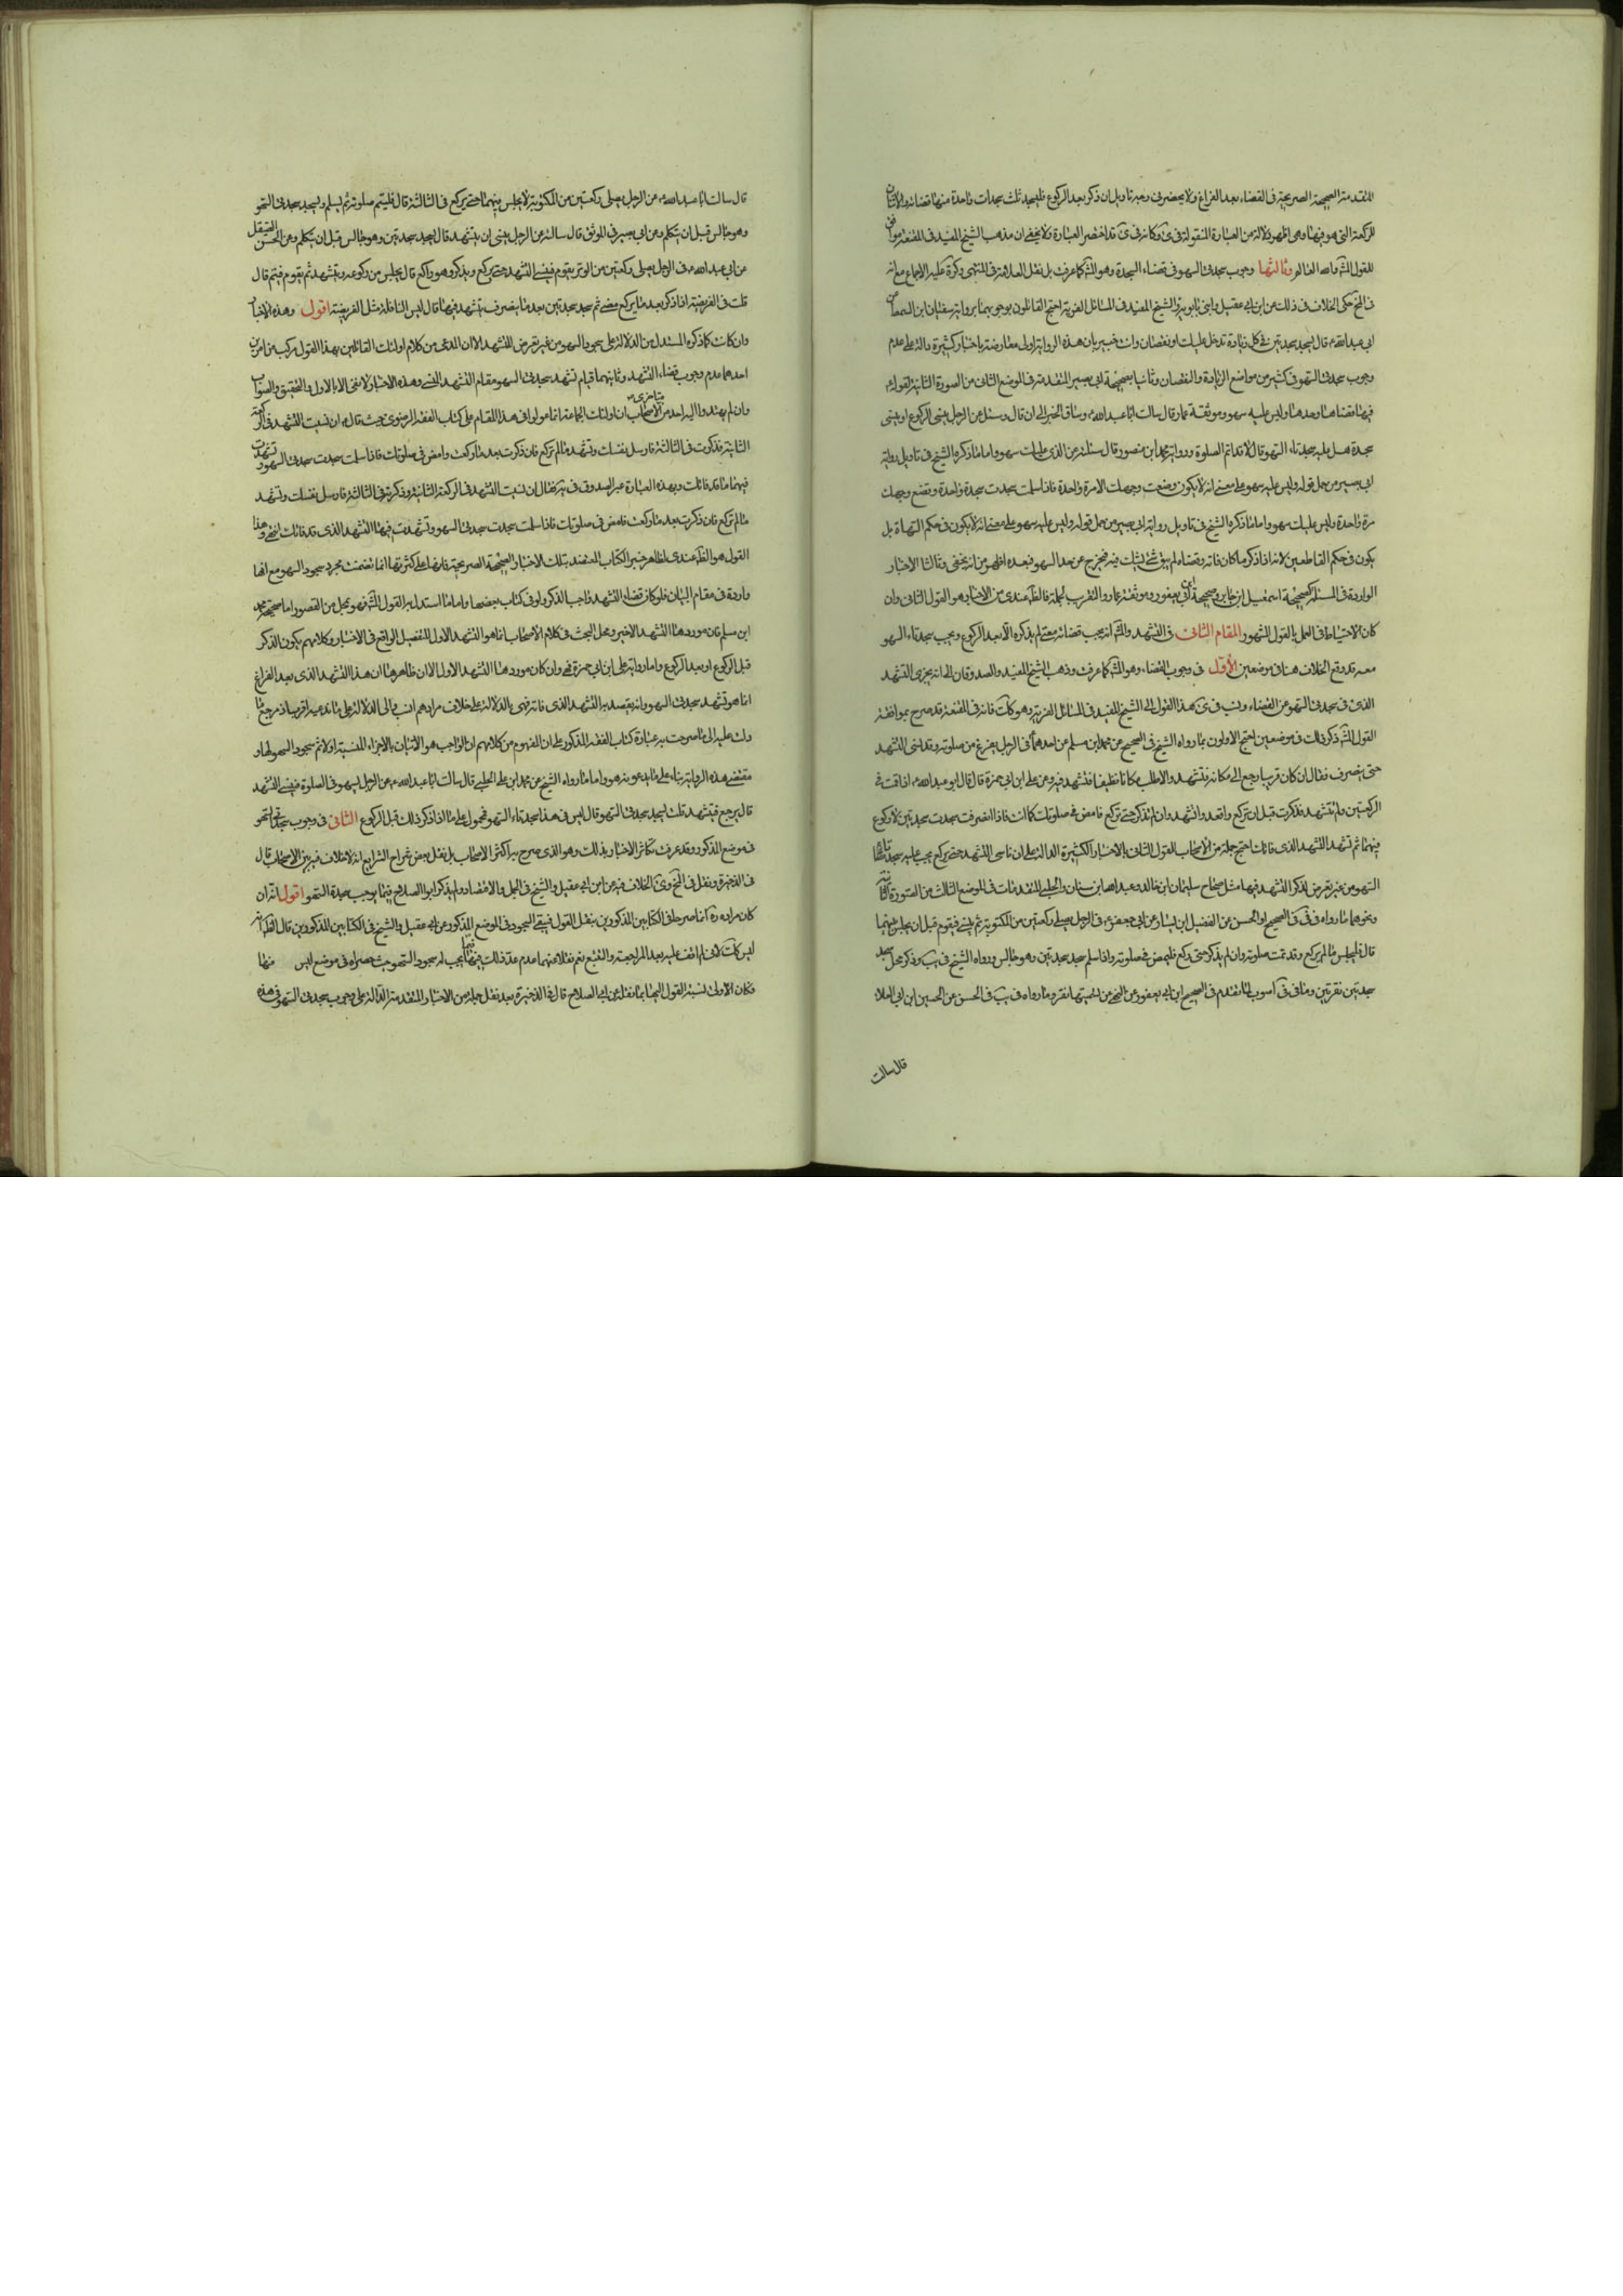 المتقدمة الصحيحة الصريحة في القضاء بعد الفراغ ولا يحضرني وجه تاويل ان ذكر بعد الركوع فليسجد ثلث سجدات واحدة منها قضاء والاثنتان
للركعة التي هو فيها وهي اظهر دلالة من العبارة المنقولة في ى وكانه في ى قد اختصر العبارة ولا يخفى ان مذهب الشيخ المفيد في المقنعة موافق
للقول المش والله العالم وثالثها وجوب سجدتي السهو في قضاء السجدة وهو المش كما عرفت بل نقل العلامة في المنتهى وكرة عليه الاجماع مع انه
في المخ حكى الخلاف في ذلك عن ابن ابي عقيل وابني بابويه والشيخ المفيد في المسائل الغرية احتج القائلون بوجوبهما برواية سفيان ابن السمط عن
ابي عبد الله ع قال تسجد سجدتين في كل زيادة تدخل عليك او نقصان وانت خبير بان هذه الرواية اولا معارضة باخبار كثيرة دالة على عدم
وجوب سجدتي السهو في كثير من مواضع الزيادة والنقصان وثانيا بصحيحة ابي بصير المتقدمة في الموضع الثاني من الصورة الثانية لقوله ع
فيها قضاها وحدها وليس عليه سهو وموثقة عمار قال سالت ابا عبد الله ع وساق الخبر الى ان قال وسئل عن الرجل ينسى الركوع او ينسى
سجدة هل عليه سجدتاء السهو قال لا قد اتم الصلوة ورواية محمد ابن منصور قال سئلته عن الذي
ابي بصير من حمل قوله وليس عليه سهو على معنى انه لا يكون
مرة واحدة وليس عليك سهو واما ما ذكره الشيخ في تاويل رواية ابي بصير من حمل قوله وليس عليه سهو على معنى انه لا يكون في حكم السهاة بل
يكون في حكم القاطعين لانه اذا ذكر ما كان فاته وقضاه لم يبق شئ يشك فيه فخرج عن حد السهو فبعده اظهر من ان يخفى وثالثا الاخبار
الواردة في المسئلة كصحيحة اسمعيل ابن جابر وصحيحة ابن ابي يعفور وموثقة عمار والتقريب الجملة فالظ عندي من الاخبار هو القول الثاني وان
كان الاحتياط في العمل بالقول المشهور المقام الثاني في التشهد والمش انه يجب قضائه متى لم يذكره الا بعد الركوع ويجب سجدتاء السهو
معه قد وقع الخلاف هنا في موضعين الأول في وجوب القضاء وهو المش كما عرفت وذهب الشيخ المفيد والصدوقان الى انه يجزي التشهد
الذي في سجدتي السهو عن القضاء ونسب في ى هذا القول الى الشيخ المفيد في المسائل الغرية وهو كك فانه في المقنعة قد صرح بموافقة
القول المش ذكر ذلك في موضعين احتج الاولون بما رواه الشيخ في الصحيح عن محمد ابن مسلم عن احدهما في الرجل يفرغ من صلوته وقد نسى التشهد
حتى ينصرف فقال ان كان قريبا رجع الى مكانه فتشهد والا طلب مكانا نظيفا فتشهد فيه وعن علي ابن ابي حمزة قال قال ابو عبد الله ع اذا قمت في
الركعتين ولم تتشهد فذكرت قبل ان تركع فاقعد وتشهد وان لم تذكر حتى تركع فامض في صلوتك كما انت فاذا انصرفت سجدت سجدتين لا ركوع
فيهما ثم تشهد التشهد الذي فاتك احتج جملة من الأصحاب للقول الثاني بالاخبار الكثيرة الدالة على ان ناسي التشهد حتى يركع يجب عليه سجدتا
السهو من غير تعرض لذكر التشهد فيها مثل صحاح سليمان ابن خالد وعبد الله ابن سنان والحلبي المتقدمات في الموضع الثالث من الصورة الثانية
ونحوها ما رواه في في الصحيح او الحسن عن الفضيل ابن يسار عن ابي جعفر ع في الرجل يصلي ركعتين من المكتوبة ثم ينسى فيقوم قبل ان يجلس بينهما
قال فليجلس ما لم يركع وقد تمت صلوته وان لم يذكر حتى ركع فليمض في صلوته واذا سلم سجد سجدتين وهو جالس ورواه الشيخ في يب وذكر محل سجد
سجدتين نقرتين وما في في
قال سالت
قال سالت ابا عبد الله ع عن الرجل يصلي ركعتين من المكتوبة لا يجلس بينهما حتى يركع في الثالثة قال فليتم صلوته ثم ليسلم ويسجد سجدتي السهو
وهو جالس قبل ان يتكلم وعن ابي بصير في الموثق قال سالته عن الرجل ينسى ان يتشهد قال يسجد سجدتين وهو جالس قبل ان يتكلم وعن الحسن الصيقل
عن ابي عبد الله ع في الرجل يصلي ركعتين من الوتر يقوم فينسى التشهد حتى يركع ويذكر وهو راكع قال يجلس من ركوعه ويتشهد ثم يقوم فيتم قال
قلت في الفريضة اذا ذكر بعد ما يركع مضى ثم سجد سجدتين بعد ما ينصرف يتشهد فيهما قال ليس النافلة مثل الفريضة اقول وهذه الاخبار
وان كانت كما ذكره المستدل من الدلالة على سجود السهو من غير تعرض للتشهد الا ان المدعى من كلام اولئك القائلين بهذا القول مركب من امرين
احدهما عدم وجوب قضاء التشهد وثانيهما قيام تشهد سجدتي السهو مقام التشهد المنسي وهذه الاخبار لا تفي الا بالاول والتحقيق والصواب
وان لم يهتد اليه احد من متاخري الأصحاب ان اولئك الجماعة انما عولوا في هذا المقام على كتاب الفقه الرضوي حيث قال ع ان نسيت التشهد في الركعة
الثانية فذكرت في الثالثة فارسل نفسك وتشهد ما لم تركع فان ذكرت بعد ما ركعت فامض في صلوتك فاذا سلمت سجدت سجدتي السهو وتشهدت
فيهما ما قد فاتك وبهذه العبارة عبر الصدوق في يه فقال ان نسيت التشهد في الركعة الثانية وذكرته في الثالثة فارسل نفسك وتشهد
ما لم تركع فان ذكرت بعد ما ركعت فامض في صلوتك فاذا سلمت سجدت سجدتي السهو وتشهدت فيهما التشهد الذي قد فاتك انتهى وهذا
القول هو الظ عندي لظاهر خبر الكتاب المعتضد بتلك الاخبار الصحيحة الصريحة فانها على كثرتها انما تضمنت مجرد سجود السهو مع انها
واردة في مقام البيان فلو كان قضاء التشهد واجبا لذكر ولو في كتاب بعضها واما ما استدل به القول المش فهو بمحل من القصور اما صحيحة محمد
ابن مسلم فان موردها التشهد الاخير ومحل البحث في كلام الأصحاب انما هو التشهد الاول للتفصيل الواقع في الاخبار وكلامهم بكون الذكر
قبل الركوع او بعد الركوع واما رواية علي ابن ابي حمزة فهي وان كان موردها التشهد الاول الا ان ظاهرها ان هذا التشهد الذي بعد الفراغ
انما هو تشهد سجدتي السهو وانه يقصد به التشهد الذي فاته فهي بالدلالة على خلاف مرادهم انسب والى الدلالة على ما ندعيه اقرب اذ مرجع ما
دلت عليه الى ما صرحت به عبارة كتاب الفقه المذكور على ان المفهوم من كلامهم ان الواجب هو الاتيان بالاجزاء المنسية اولا ثم سجود السهو لها و
مقتضى هذه الرواية بناء على ما يدعونه هو واما ما رواه الشيخ عن محمد ابن علي الحلبي قال سالت ابا عبد الله ع عن الرجل يسهو في الصلوة فينسى التشهد
قال يرجع فيتشهد قلت ايسجد سجدتي السهو قال ليس في هذا سجدتاء السهو فمحمول على ما اذا ذكر ذلك قبل الركوع الثاني في وجوب سجدتي السهو
في موضع المذكور وقد عرفت تكاثر الاخبار بذلك وهو الذي صرح به اكثر الاصحاب بل نقل بعض شراح الشرايع انه لا خلاف فيه بين الاصحاب قال
في الذخيرة ونقل في المخ وى الخلاف فيه عن ابن ابي عقيل والشيخ في الجمل والاقتصاد ولم يذكر ابو الصلاح فيما يوجب سجدة السهو اقول انه ان
كان مراده ره
ليس كك لاني لم اقف عليه بعد المراجعة والتتبع نعم نقلا عنهما عدم عد ذلك فيما يجب له سجود السهو حيث حصراه في موضع ليس منها
فكان الأولى نسبة القول اليها بما نقل عن ابي الصلاح قال في الذخيرة بعد نقل جملة من الاخبار المتقدمة الدالة على وجوب سجدتي السهو في هذه